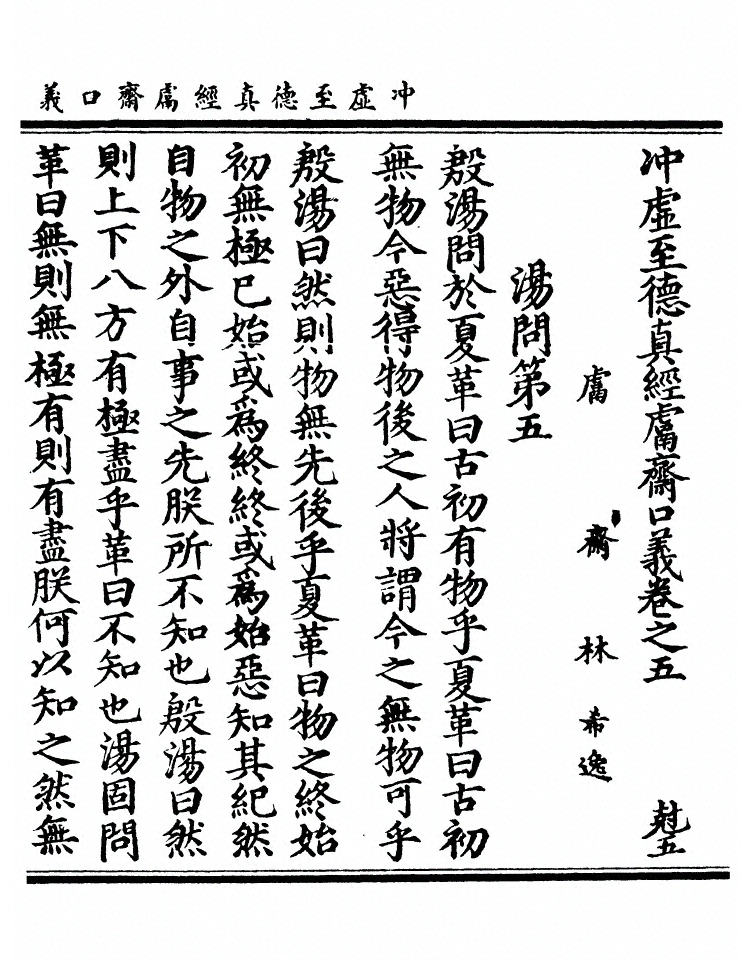 冲虛至德真經鬳齋口義
冲虛至德真經鬳齋口義卷之五 尅五
鬳齋林希逸
湯問第五
殷湯問於夏革曰古初有物乎夏革曰古初
無物今惡得物後之人將謂今之無物可乎
殷湯曰然則物無先後乎夏革曰物之終始
初無極已始或爲終終或爲始惡知其紀然
自物之外自事之先朕所不知也殷湯曰然
則上下八方有極盡乎革曰不知也湯固問
革曰無則無極有則有盡朕何以知之然無